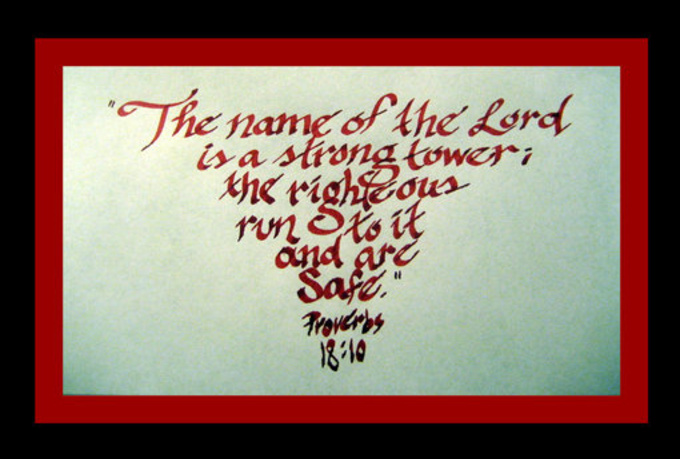 "The name of the Lord
is a strong tower;
the righteous
run to it
and are
Safe."
Proverbs
18:10